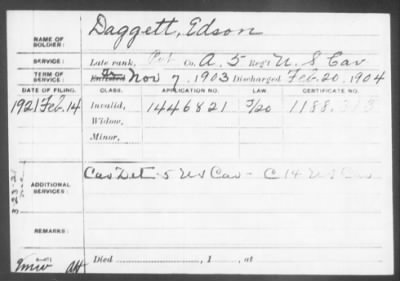 NAME OF SOLDIER: Daggett, Edson
SERVICE: Late rank, Pvt Co. A. 5 Reg't U. S Cav
TERM OF SERVICE: Enlisted Nov 7, 1903 Discharged Feb. 20, 1904
DATE OF FILING. CLASS. APPLICATION NO. LAW. CERTIFICATE NO.
1921 Feb. 14 Invalid, 1446821 1188.313
Widow,
Minor,
ADDITIONAL SERVICES: Cav Det - 5 US Cav - C 14 US Cav
3-23-21
REMARKS:
Died , 1 , at